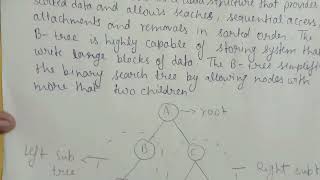 sorted data and allows seaches, sequential access,
attachments and removals in sorted order. The
B-tree is highly capable of storing system that
write large blocks of data. The B-tree simplifies
the binary search tree by allowing nodes with
more that two children
A → root
B C
left sub
tree
Right subt